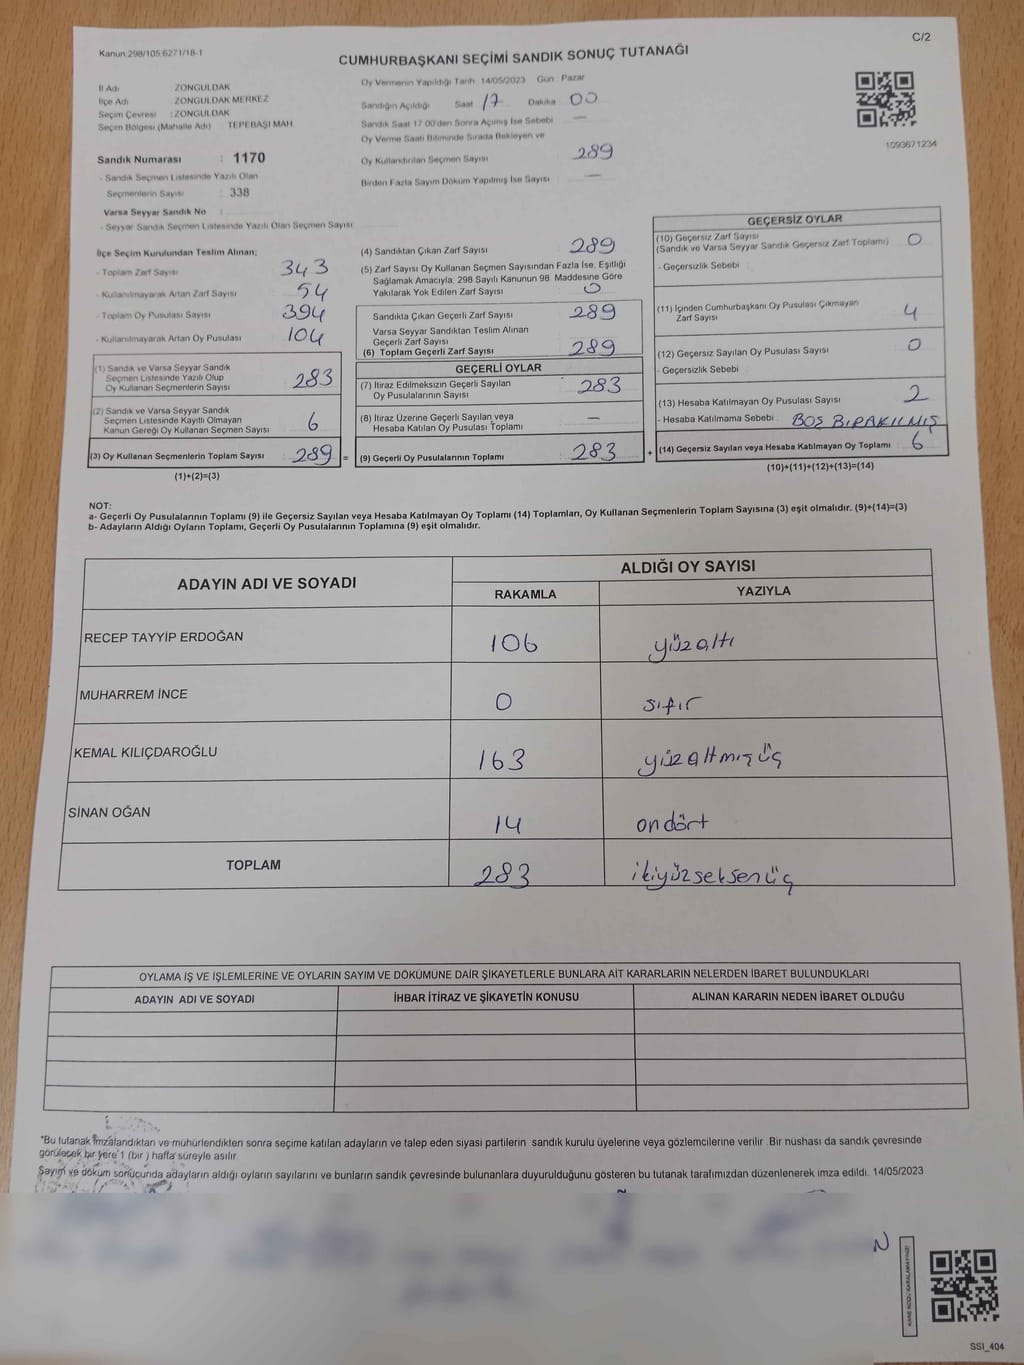 Kanun:298/105,6271/18-1
C/2
CUMHURBAŞKANI SEÇİMİ SANDIK SONUÇ TUTANAĞI
İl Adı ZONGULDAK
İlçe Adı ZONGULDAK MERKEZ
Seçim Çevresi :ZONGULDAK
Seçim Bölgesi (Mahalle Adı) TEPEBAŞI MAH.
Sandık Numarası : 1170
- Sandık Seçmen Listesinde Yazılı Olan
Seçmenlerin Sayısı : 338
Varsa Seyyar Sandık No :
- Seyyar Sandık Seçmen Listesinde Yazılı Olan Seçmen Sayısı
Oy Vermenin Yapıldığı Tarih 14/05/2023 Gün : Pazar
Sandığın Açıldığı Saat 17 Dakika 00
Sandık Saat 17.00'den Sonra Açılmış İse Sebebi —
Oy Verme Saati Bitiminde Sırada Bekleyen ve
Oy Kullandırılan Seçmen Sayısı 289
Birden Fazla Sayım Döküm Yapılmış İse Sayısı —
1093671234
İlçe Seçim Kurulundan Teslim Alınan;
- Toplam Zarf Sayısı 343
- Kullanılmayarak Artan Zarf Sayısı 54
- Toplam Oy Pusulası Sayısı 394
- Kullanılmayarak Artan Oy Pusulası 104
(1) Sandık ve Varsa Seyyar Sandık
Seçmen Listesinde Yazılı Olup
Oy Kullanan Seçmenlerin Sayısı 283
(2) Sandık ve Varsa Seyyar Sandık
Seçmen Listesinde Kayıtlı Olmayan
Kanun Gereği Oy Kullanan Seçmen Sayısı 6
(3) Oy Kullanan Seçmenlerin Toplam Sayısı 289 =
(1)+(2)=(3)
(4) Sandıktan Çıkan Zarf Sayısı 289
(5) Zarf Sayısı Oy Kullanan Seçmen Sayısından Fazla İse, Eşitliği
Sağlamak Amacıyla, 298 Sayılı Kanunun 98. Maddesine Göre
Yakılarak Yok Edilen Zarf Sayısı 0
Sandıkta Çıkan Geçerli Zarf Sayısı 289
Varsa Seyyar Sandıktan Teslim Alınan
Geçerli Zarf Sayısı
(6) Toplam Geçerli Zarf Sayısı 289
GEÇERLİ OYLAR
(7) İtiraz Edilmeksizin Geçerli Sayılan
Oy Pusulalarının Sayısı 283
(8) İtiraz Üzerine Geçerli Sayılan veya
Hesaba Katılan Oy Pusulası Toplamı —
(9) Geçerli Oy Pusulalarının Toplamı : 283 +
GEÇERSİZ OYLAR
(10) Geçersiz Zarf Sayısı
(Sandık ve Varsa Seyyar Sandık Geçersiz Zarf Toplamı) 0
- Geçersizlik Sebebi
(11) İçinden Cumhurbaşkanı Oy Pusulası Çıkmayan
Zarf Sayısı 4
(12) Geçersiz Sayılan Oy Pusulası Sayısı 0
- Geçersizlik Sebebi
(13) Hesaba Katılmayan Oy Pusulası Sayısı 2
- Hesaba Katılmama Sebebi BOŞ BIRAKILMIŞ
(14) Geçersiz Sayılan veya Hesaba Katılmayan Oy Toplamı 6
(10)+(11)+(12)+(13)=(14)
NOT:
a- Geçerli Oy Pusulalarının Toplamı (9) ile Geçersiz Sayılan veya Hesaba Katılmayan Oy Toplamı (14) Toplamları, Oy Kullanan Seçmenlerin Toplam Sayısına (3) eşit olmalıdır. (9)+(14)=(3)
b- Adayların Aldığı Oyların Toplamı, Geçerli Oy Pusulalarının Toplamına (9) eşit olmalıdır.
ADAYIN ADI VE SOYADI ALDIĞI OY SAYISI
RAKAMLA YAZIYLA
RECEP TAYYİP ERDOĞAN 106 yüzaltı
MUHARREM İNCE 0 sıfır
KEMAL KILIÇDAROĞLU 163 yüzaltmışüç
SİNAN OĞAN 14 ondört
TOPLAM 283 ikiyüzseksenüç
OYLAMA İŞ VE İŞLEMLERİNE VE OYLARIN SAYIM VE DÖKÜMÜNE DAİR ŞİKAYETLERLE BUNLARA AİT KARARLARIN NELERDEN İBARET BULUNDUKLARI
ADAYIN ADI VE SOYADI İHBAR İTİRAZ VE ŞİKAYETİN KONUSU ALINAN KARARIN NEDEN İBARET OLDUĞU
*Bu tutanak imzalandıktan ve mühürlendikten sonra seçime katılan adayların ve talep eden siyasi partilerin sandık kurulu üyelerine veya gözlemcilerine verilir .Bir nüshası da sandık çevresinde
görülecek bir yere 1 (bir ) hafta süreyle asılır.
Sayım ve döküm sonucunda adayların aldığı oyların sayılarını ve bunların sandık çevresinde bulunanlara duyurulduğunu gösteren bu tutanak tarafımızdan düzenlenerek imza edildi. 14/05/2023
N
KARE KODU KARALAMAYINIZ!
SSI_404